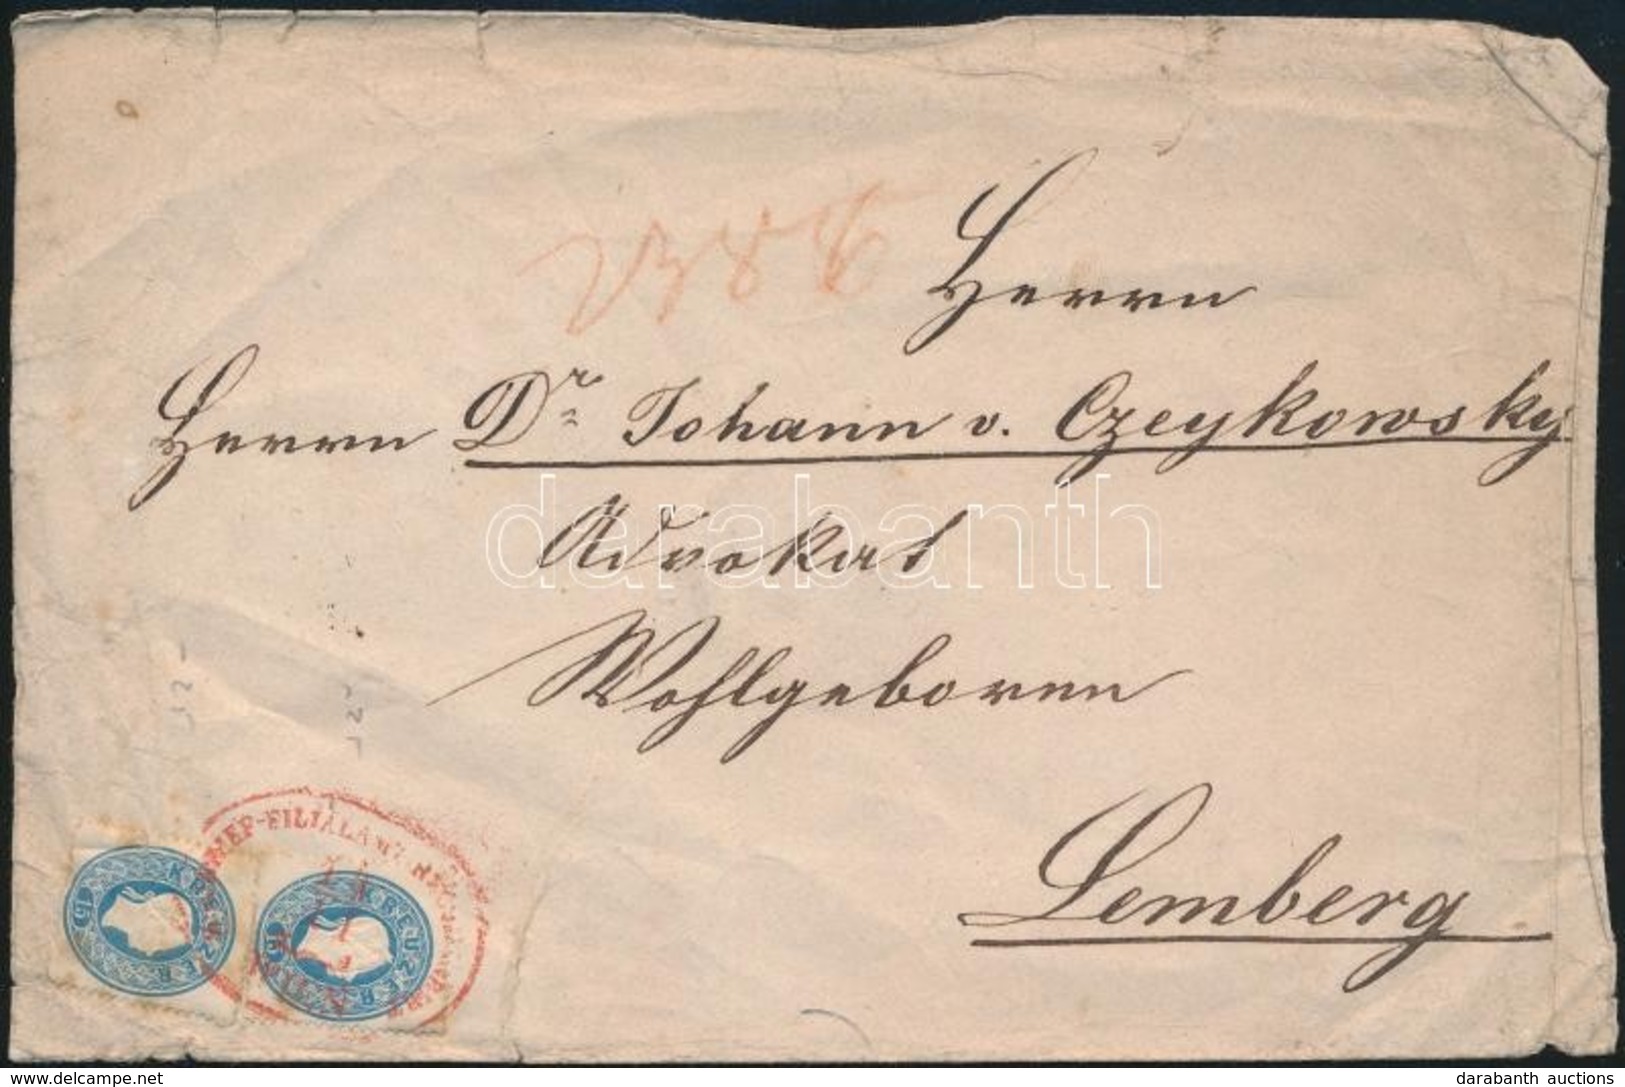 Herrn
Herrn Dr. Johann v. Czeykowsky
Advokat
darabanth
Wohlgeboren
Lemberg
15 KREUZER
15 KREUZER
www.delcampe.net
darabanth auctions